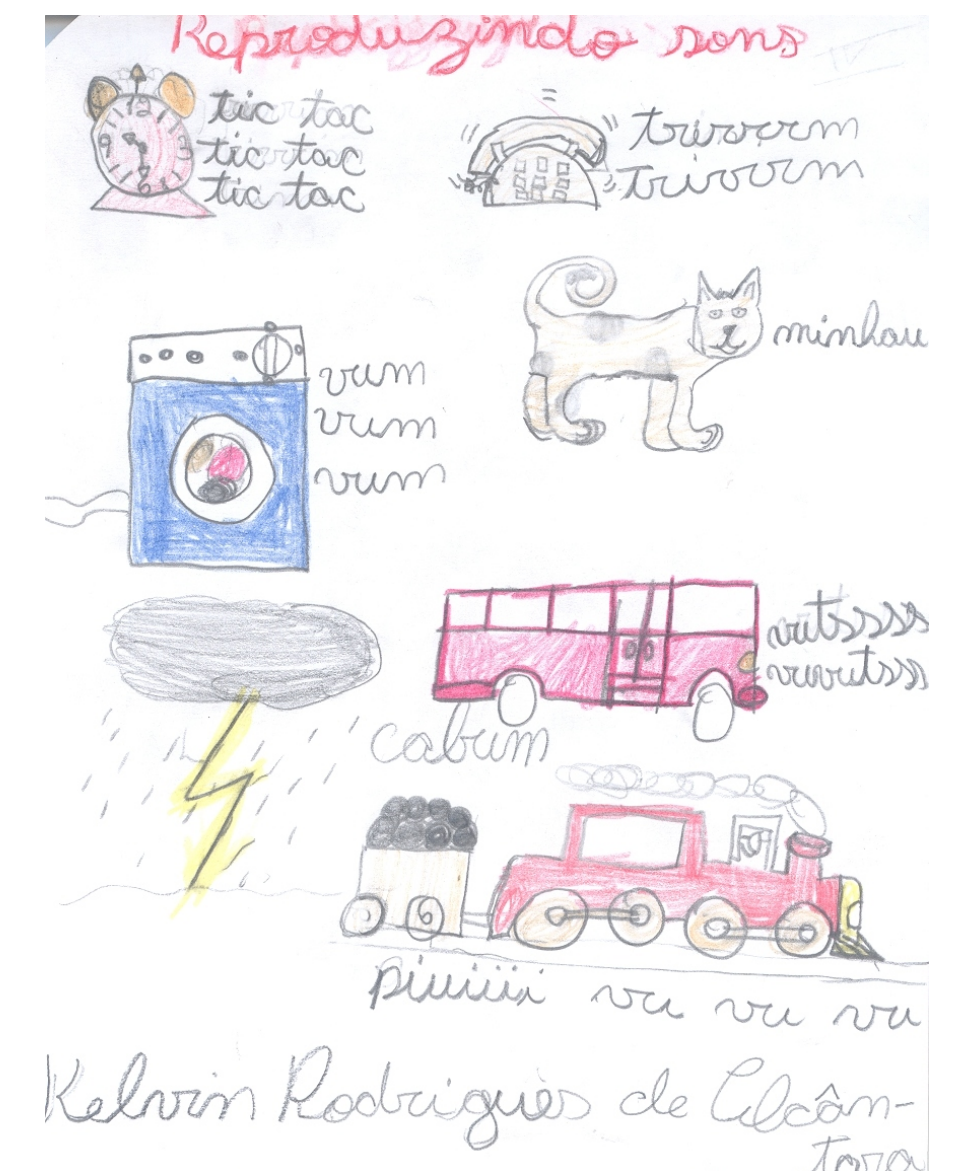 Reproduzindo sons
tic tac
tic tac
tic tac
12
9
3
6
trivorrm
trivorrm
minhau
vum
vum
vum
vutssss
vuvutsss
cabum
piuiiii vu vu vu
Kelvin Rodrigues de Alcân-
tara